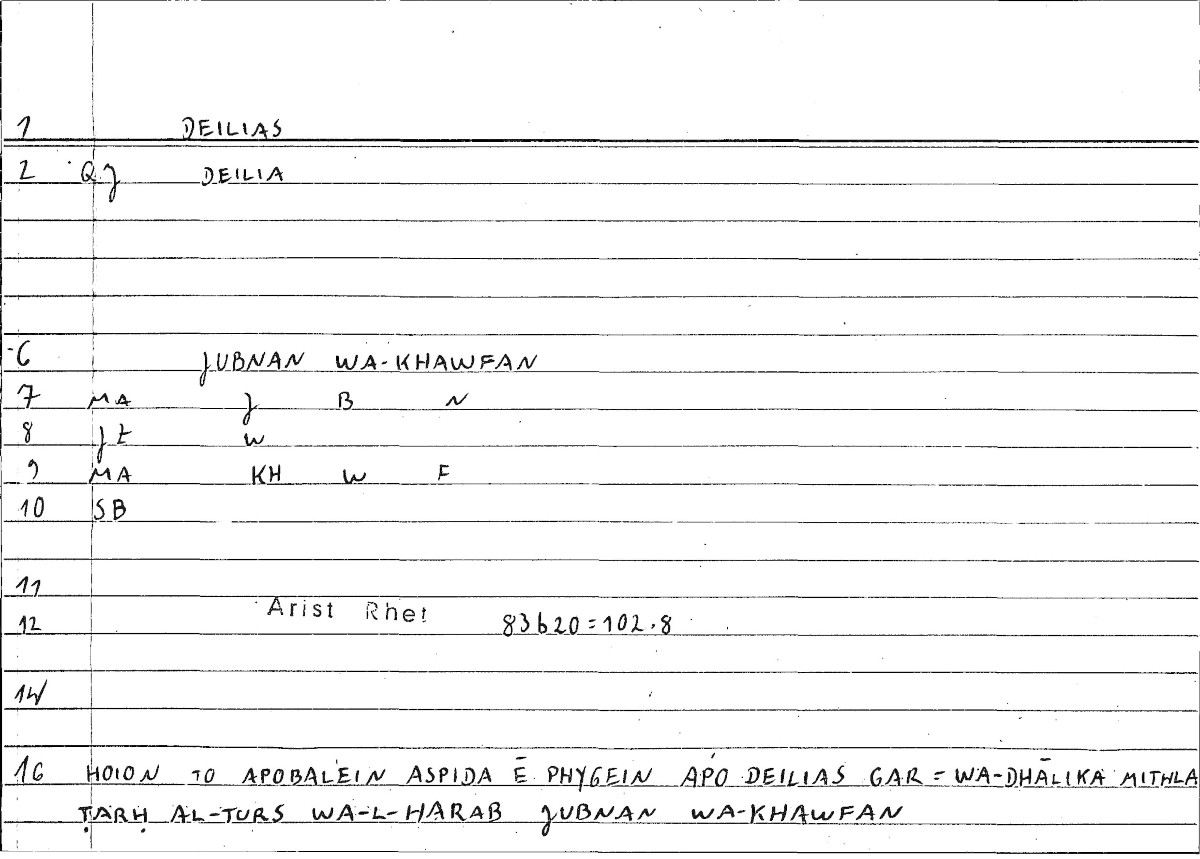 1 DEILIAS
2 QJ DEILIA
6 JUBNAN WA-KHAWFAN
7 MA J B N
8 JZ W
9 MA KH W F
10 SB
11
12 Arist Rhet 83b20=102.8
14
16 HOION TO APOBALEIN ASPIDA Ē PHYGEIN APO DEILIAS GAR = WA-DHĀLIKA MITHLA
ṬARḤ AL-TURS WA-L-HARAB JUBNAN WA-KHAWFAN